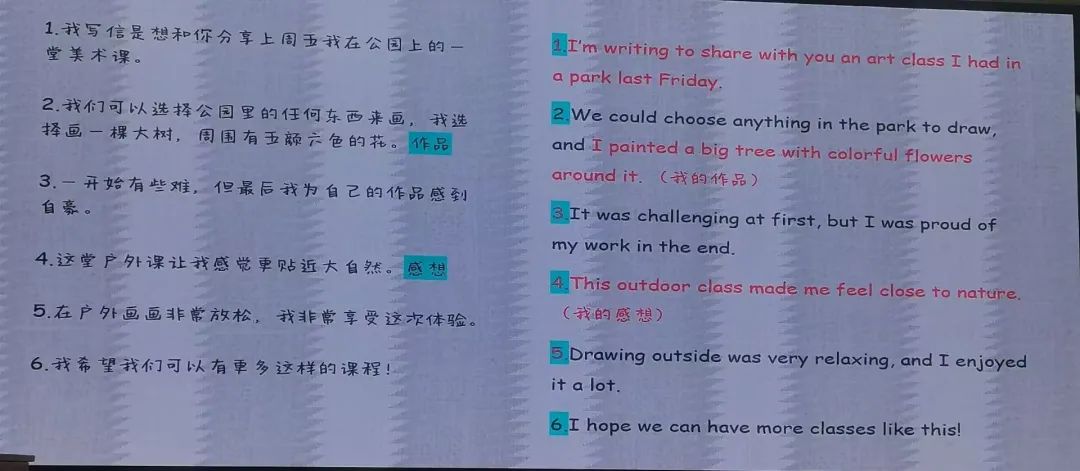 1.我写信是想和你分享上周五我在公园上的一
堂美术课。
2.我们可以选择公园里的任何东西来画，我选
择画一棵大树，周围有五颜六色的花。作品
3.一开始有些难，但最后我为自己的作品感到
自豪。
4.这堂户外课让我感觉更贴近大自然。感想
5.在户外画画非常放松，我非常享受这次体验。
6.我希望我们可以有更多这样的课程！
1.I'm writing to share with you an art class I had in
a park last Friday.
2.We could choose anything in the park to draw,
and I painted a big tree with colorful flowers
around it.（我的作品）
3.It was challenging at first, but I was proud of
my work in the end.
4.This outdoor class made me feel close to nature.
（我的感想）
5.Drawing outside was very relaxing, and I enjoyed
it a lot.
6.I hope we can have more classes like this!